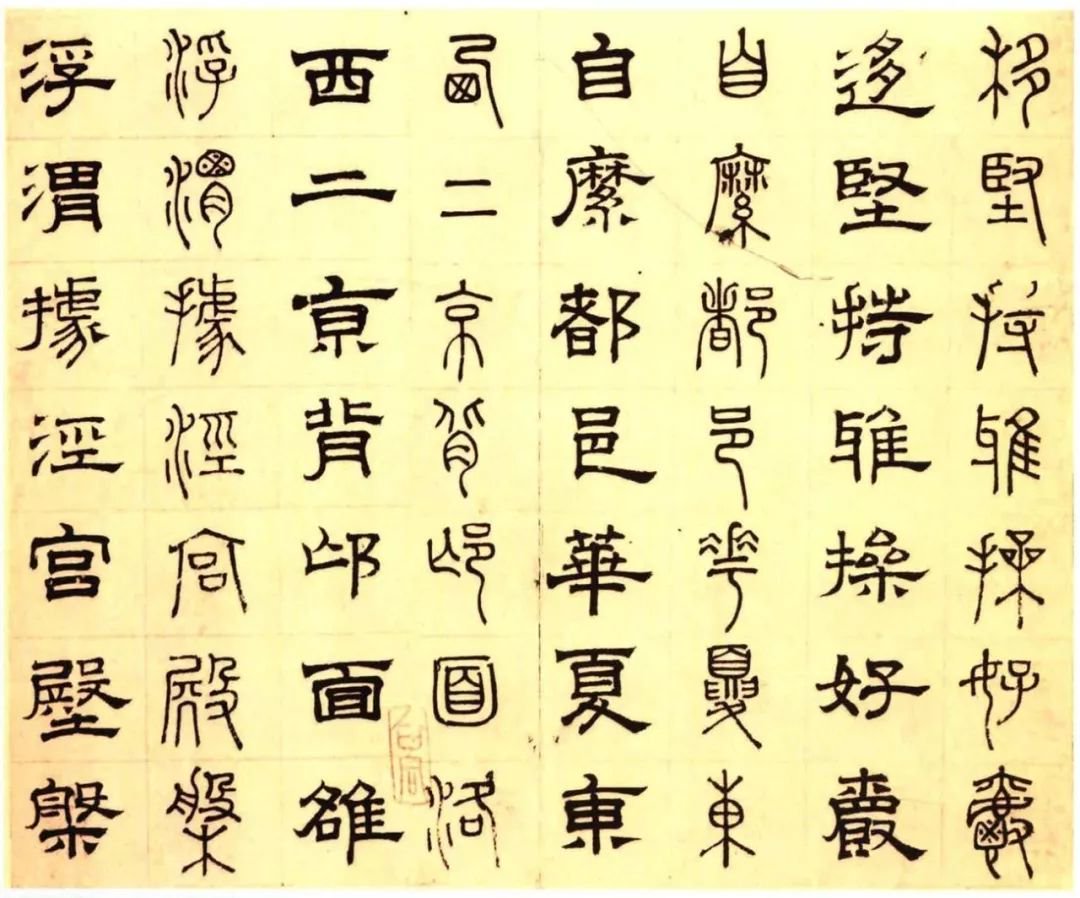 移堅持雅操好爵
迻堅持雅操好爵
自縻都邑華夏東
自縻都邑華夏東
西二京背邙面洛
西二京背邙面雒
浮渭據涇宮殿槃
浮渭據涇宮壂槃